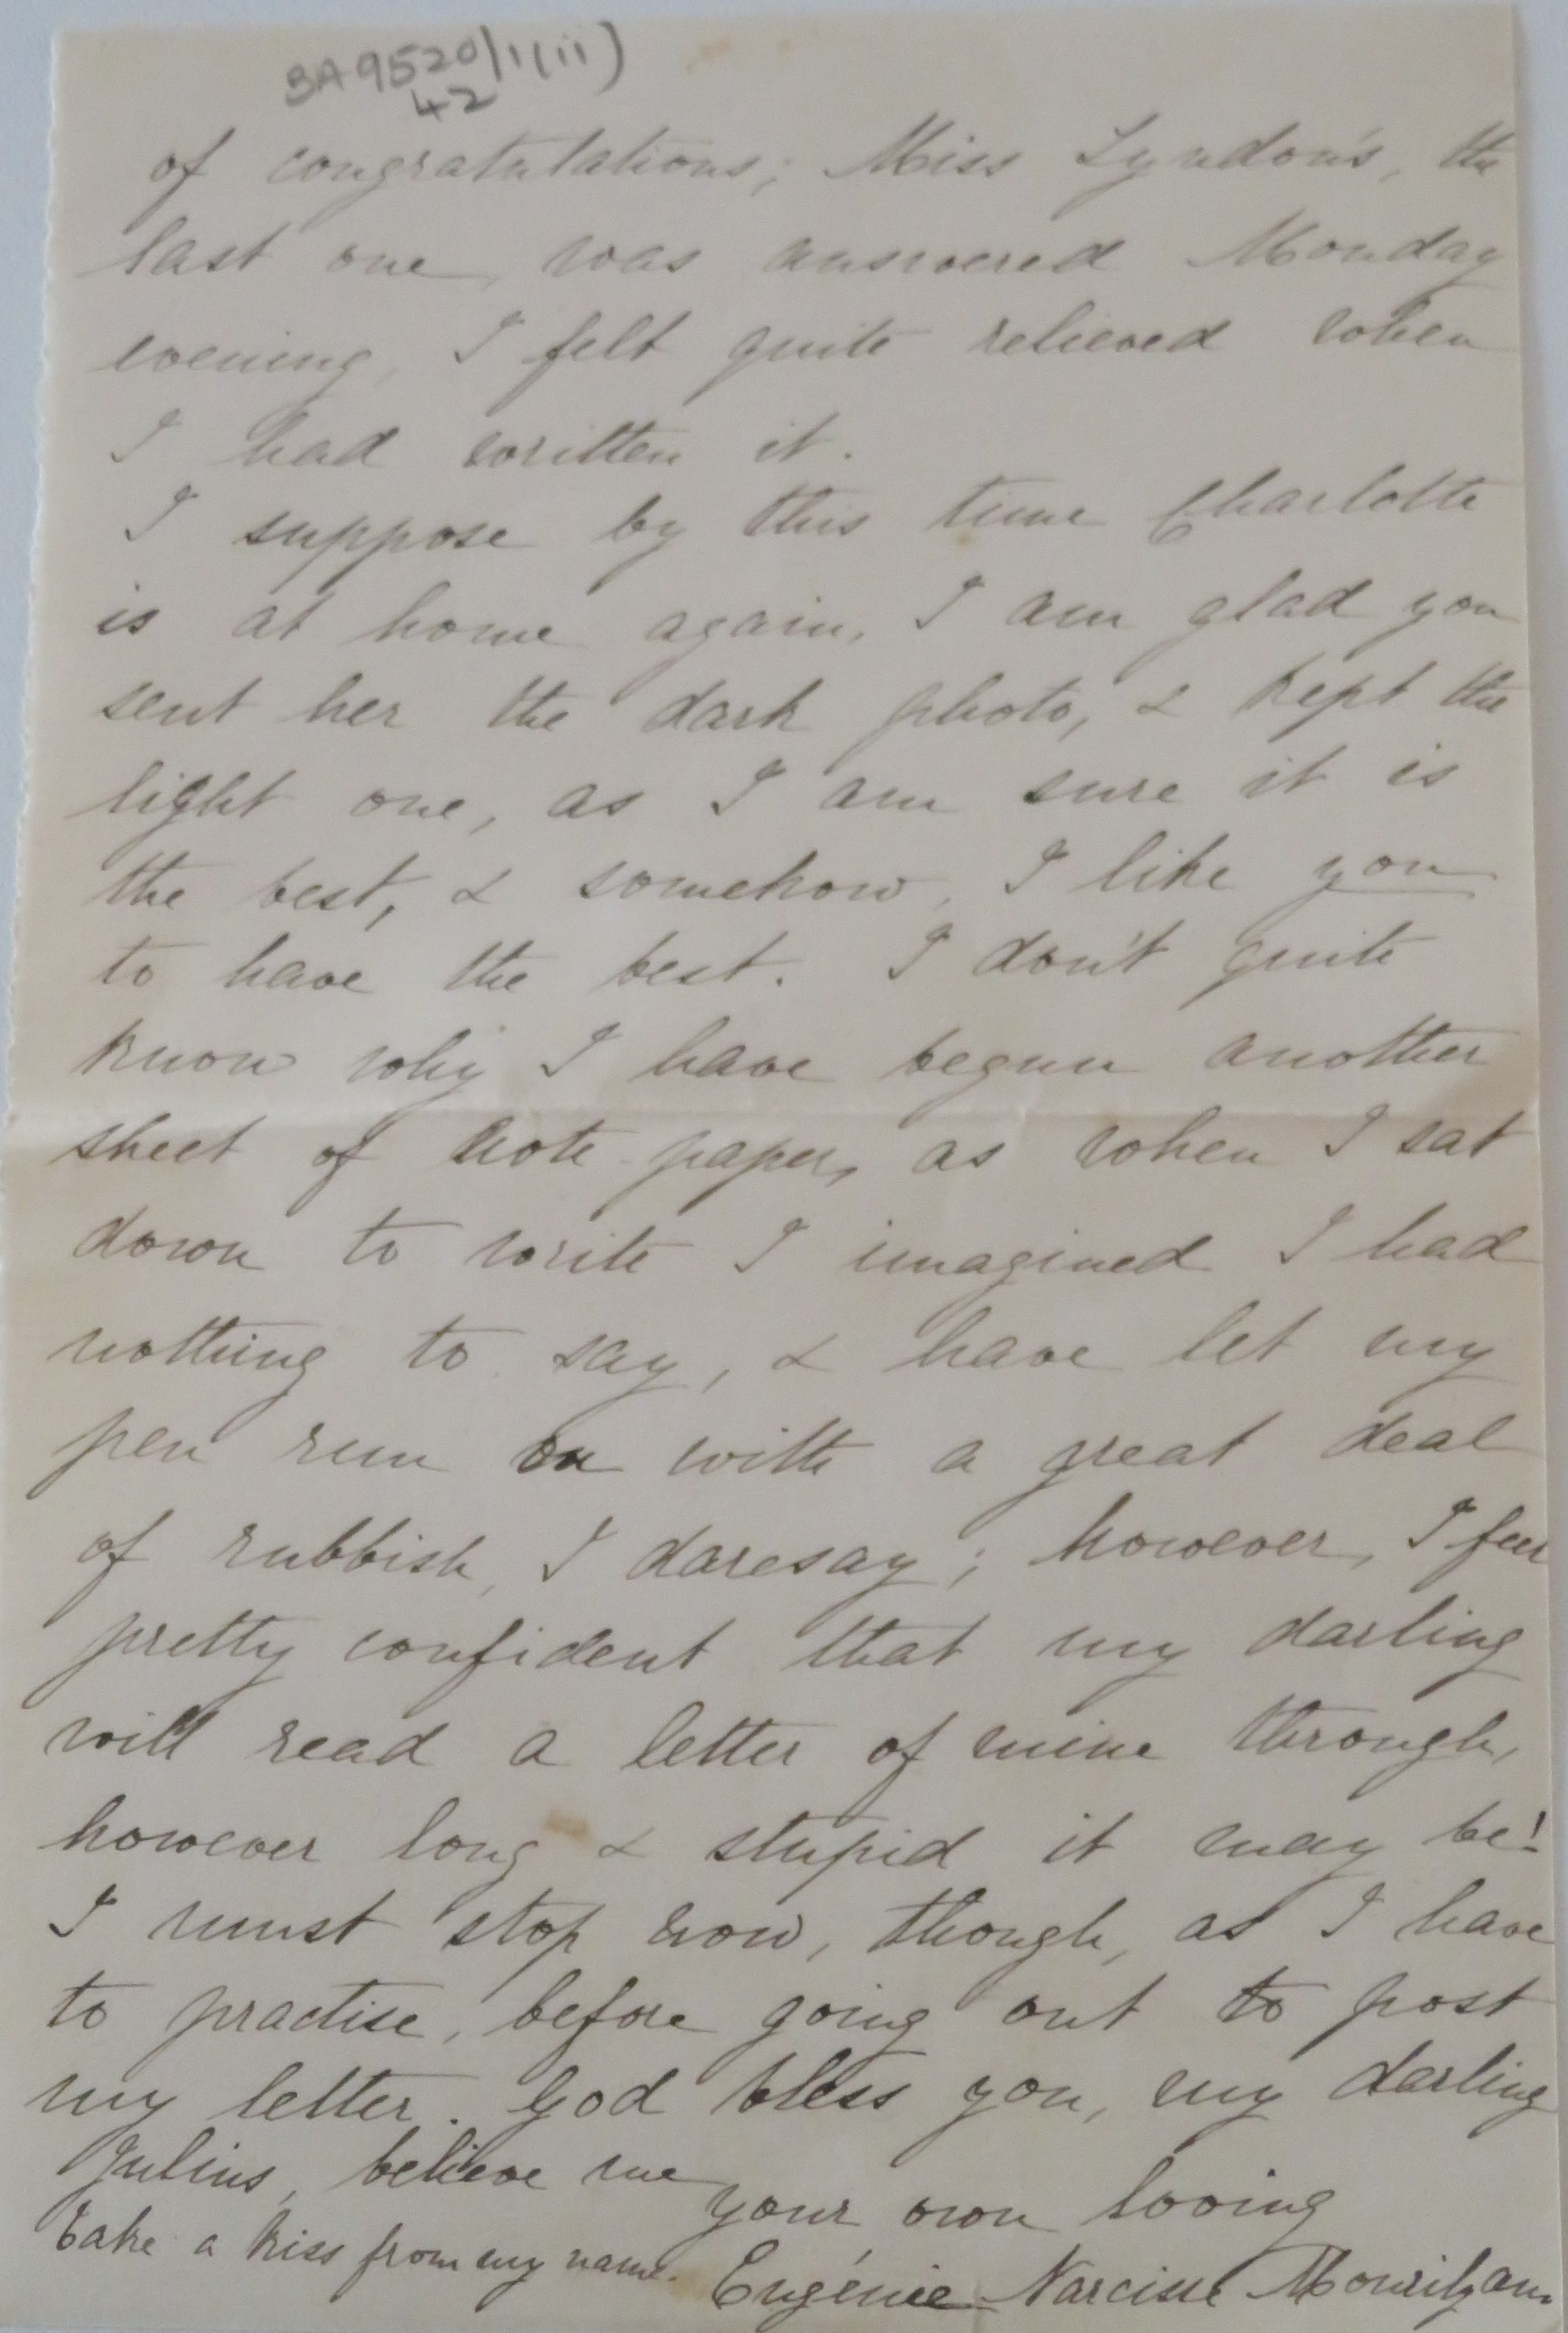 BA9520/1(ii)
42
of congratulations; Miss Lyndon's, the
last one, was answered Monday
evening, I felt quite relieved when
I had written it.
I suppose by this time Charlotte
is at home again, I am glad you
sent her the dark photo, & kept the
light one, as I am sure it is
the best, & somehow, I like you
to have the best. I don't quite
know why I have begun another
sheet of note-paper, as when I sat
down to write I imagined I had
nothing to say, & have let my
pen run on with a great deal
of rubbish, I daresay; however, I feel
pretty confident that my darling
will read a letter of mine through,
however long & stupid it may be!
I must stop now, though, as I have
to practise, before going out to post
my letter. God bless you, my darling
Julius, believe me
your own loving
Take a kiss from my name.
Eugénie Narcisse Mourilyan.